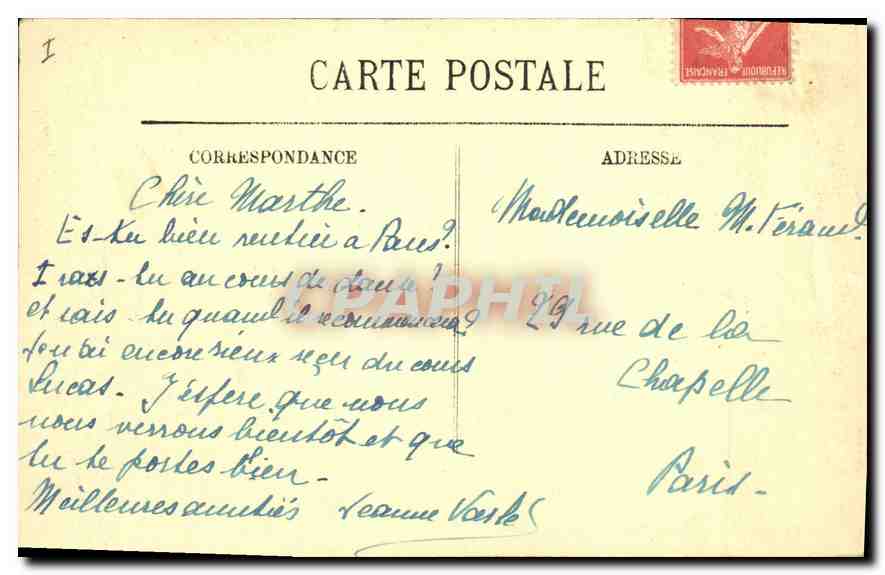 I
CARTE POSTALE
RÉPUBLIQUE FRANÇAISE
CORRESPONDANCE
Chère Marthe.
Es-tu bien rentrée a Paris?
Iras-tu au cours de danse?
et sais-tu quand il recommencera?
Je n'ai encore rien reçu du cours
Lucas. J'espère que nous
nous verrons bientôt et que
tu te portes bien-
Meilleures amitiés Jeanne
ADRESSE
Mademoiselle M. Féraud
29 rue de la
Chapelle
Paris-
CPAPHIL